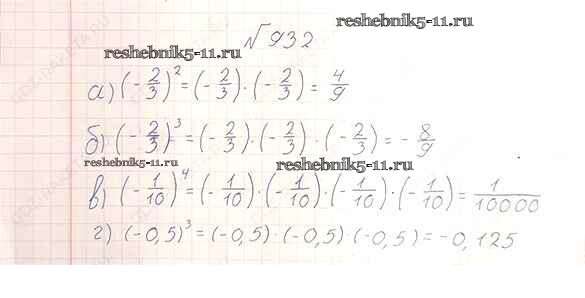 reshebnik5-11.ru
№932
reshebnik5-11.ru
а) (-2/3)² = (-2/3)·(-2/3) = 4/9
б) (-2/3)³ = (-2/3)·(-2/3)·(-2/3) = -8/9
reshebnik5-11.ru
reshebnik5-11.ru
в) (-1/10)⁴ = (-1/10)·(-1/10)·(-1/10)·(-1/10) = 1/10000
г) (-0,5)³ = (-0,5)·(-0,5)·(-0,5) = -0,125